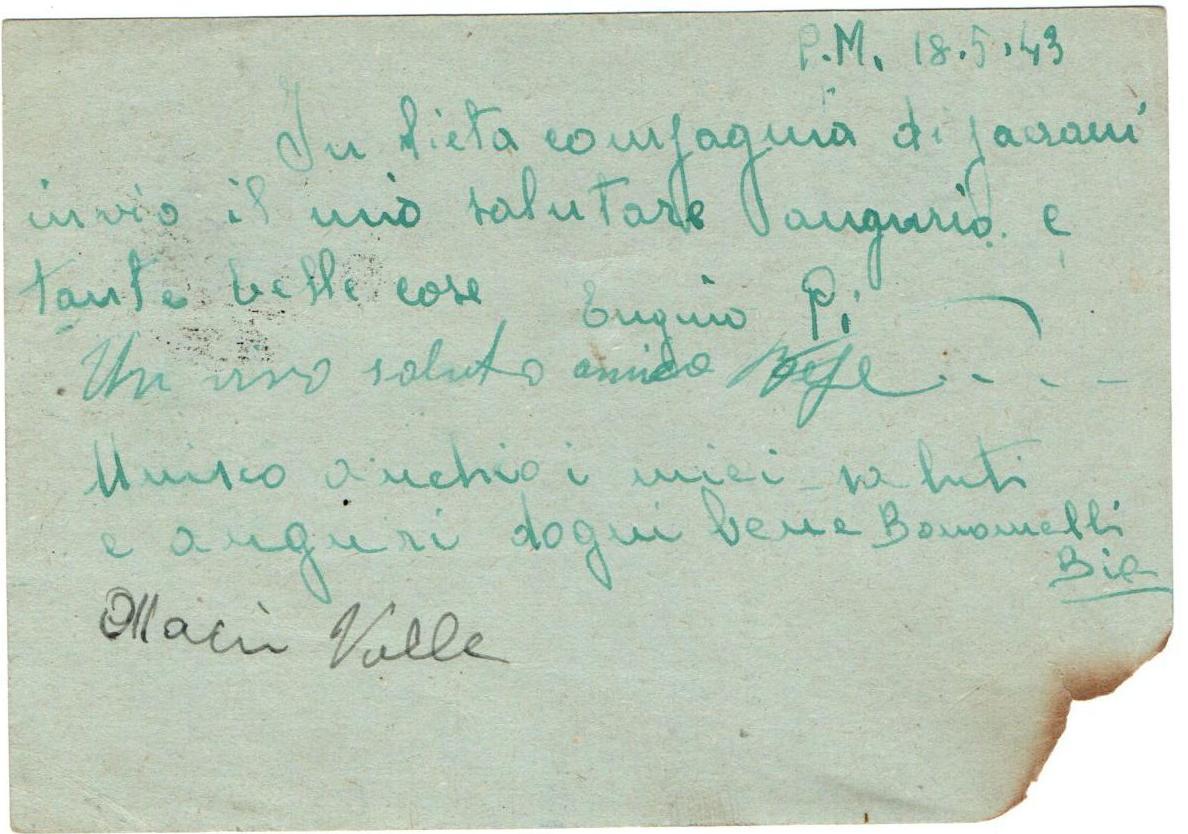 P.M. 18.5.43
In lieta compagnia di paesani
invio il mio salutare augurio e
tante belle cose Eugenio P.
Un vivo saluto amico
Unisco anchio i miei saluti
e auguri dogni bene Bonomelli
Bia
Macri Valle